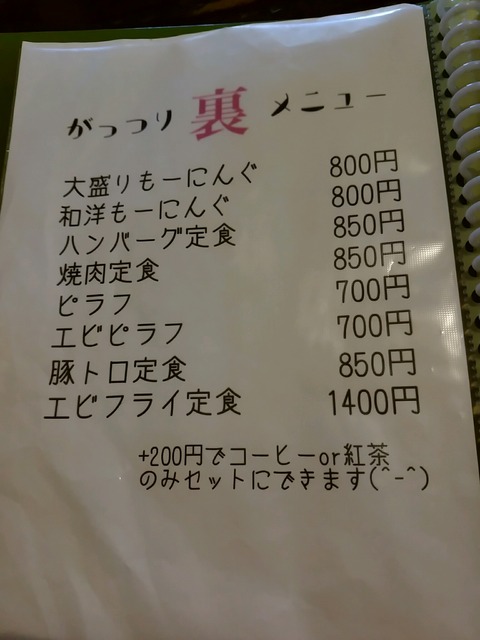 がっつり 裏 メニュー
大盛りもーにんぐ 800円
和洋もーにんぐ 800円
ハンバーグ定食 850円
焼肉定食 850円
ピラフ 700円
エビピラフ 700円
豚トロ定食 850円
エビフライ定食 1400円
+200円でコーヒーor紅茶
のみセットにできます(^-^)